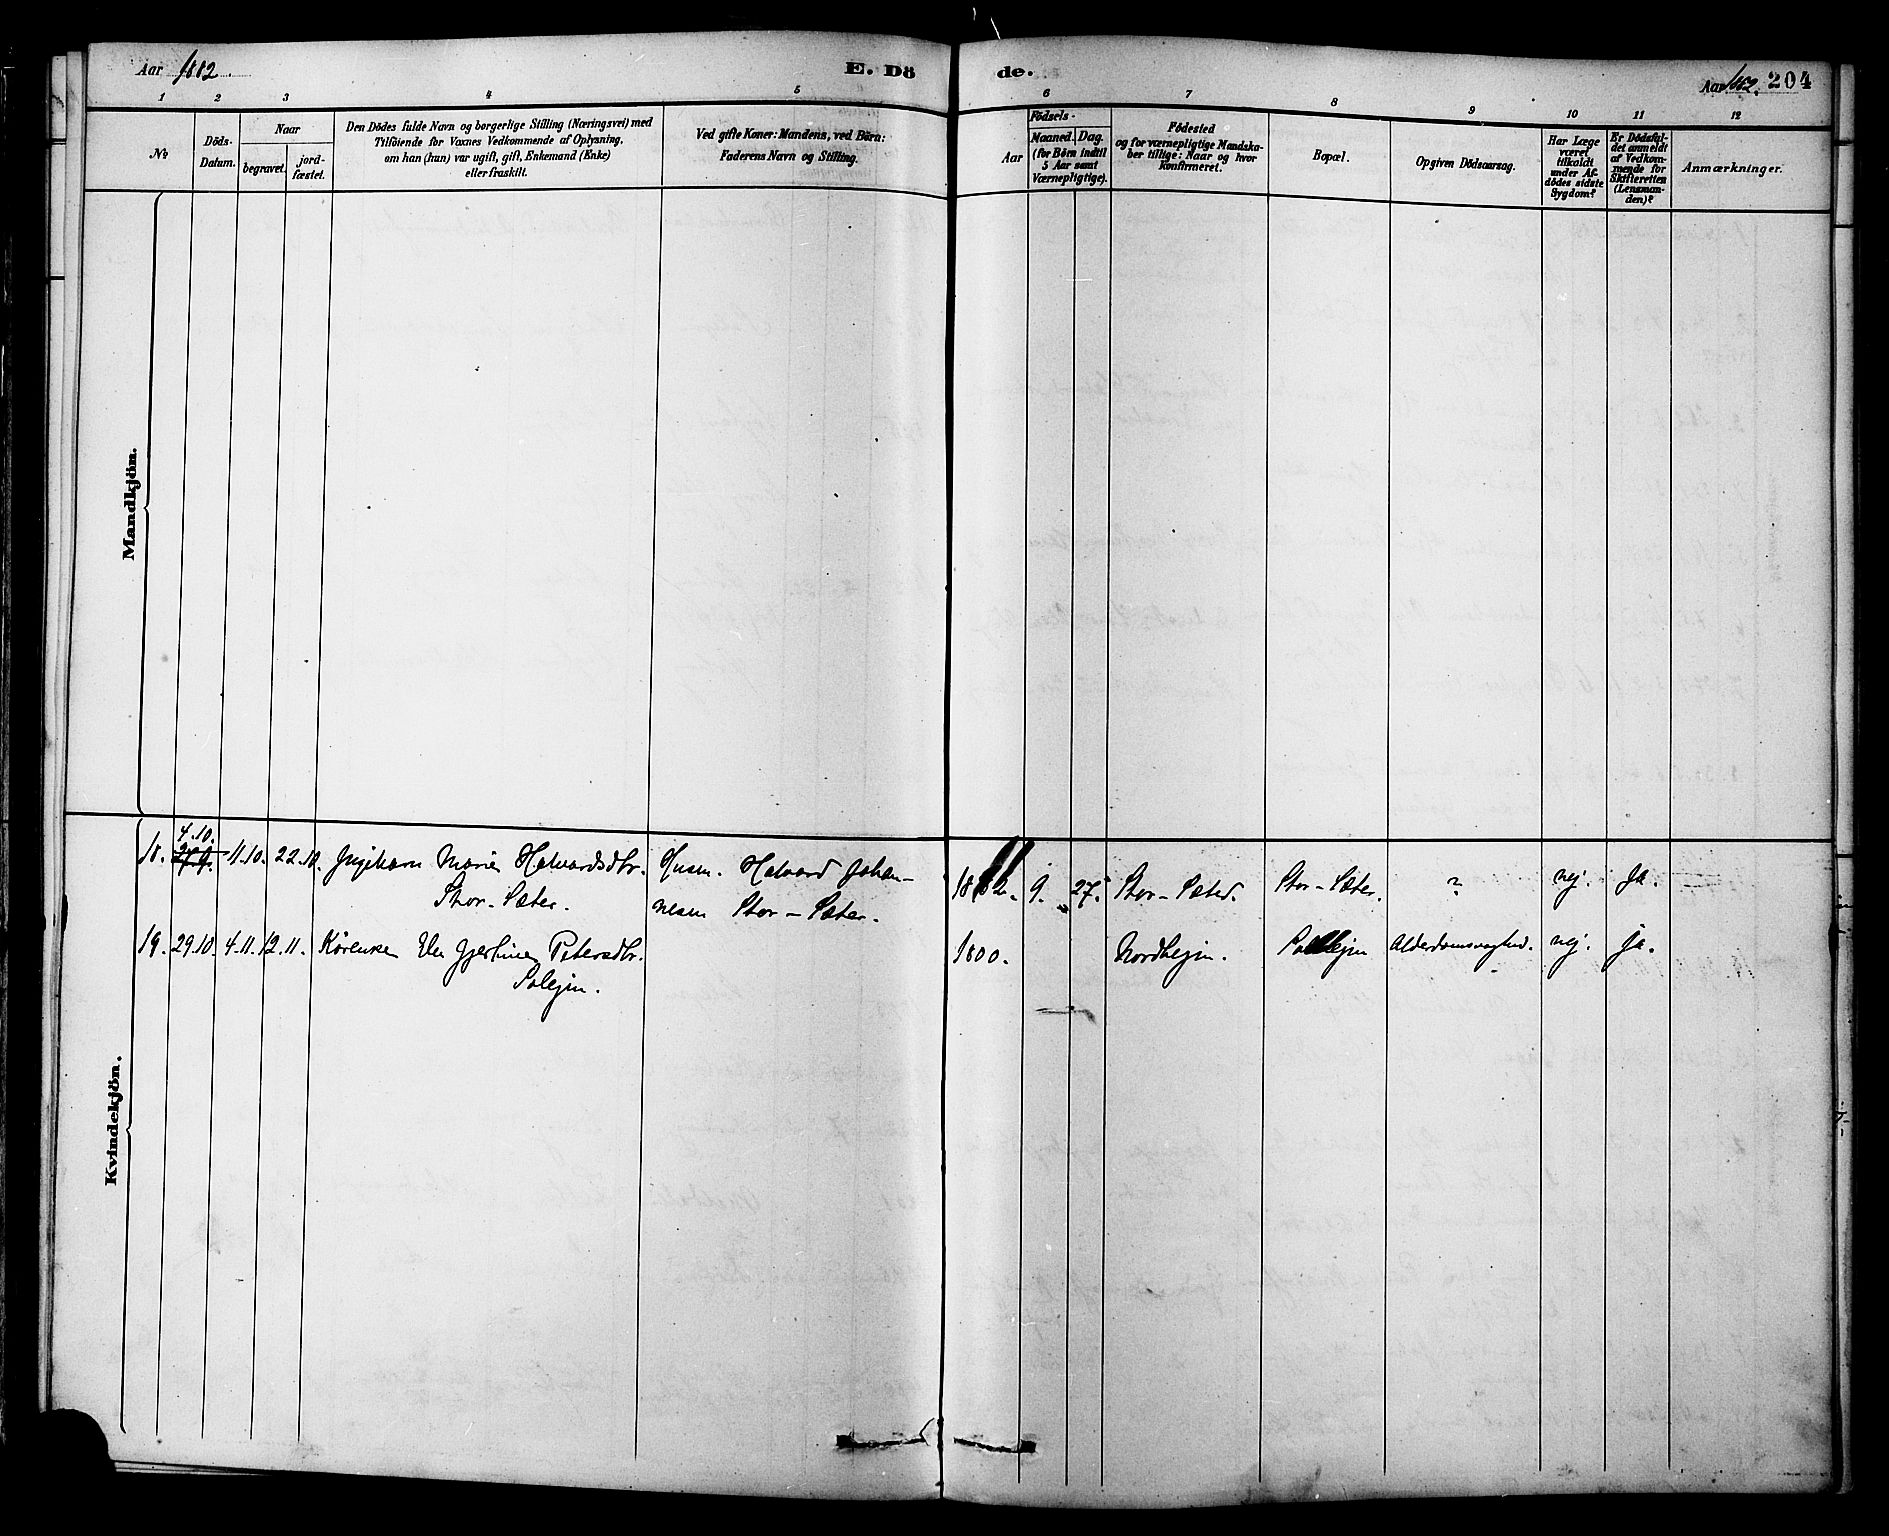 Aar 1882.
E. Dö
de.
Aar 1882. 204
1 2 3 4 5 6 7 8 9 10 11 12
No
Döds-
Datum.
Naar
begravet.
jord-
fæstet.
Den Dödes fulde Navn og borgerlige Stilling (Næringsvei) med
Tilföiende for Voxnes Vedkommende af Oplysning,
om han (hun) var ugift, gift, Enkemand (Enke)
eller fraskilt.
Ved gifte Koner: Mandens, ved Börn:
Faderens Navn og Stilling.
Födsels-
Aar
Maaned. Dag.
(for Börn indtil
5 Aar samt
Værnepligtige).
Födested
og for værnepligtige Mandska-
ber tillige: Naar og hvor
Konfirmeret.
Bopæl.
Opgiven Dödsaarsag.
Har Læge
været
tilkaldt
under Af-
dödes sidste
Sygdom?
Er Dödsfal-
det anmeldt
af Vedkom-
mende for
Skifteretten
(Lensman-
den)?
Anmærkninger.
Mandkjön.
Kvindekjön.
4.10.
18. 27.9. 11.10. 22.12. Ingeborn Marie Halvardsdtr. Husm. Halvard Johan- 1882. 9. 27. Stor-Sæter. Stor-Sæter. ? nej. Ja.
Stor-Sæter. nesen Stor-Sæter.
19. 29.10. 4.11. 12.11. Kårenke Else Gjertine Petersdtr. 1800. Nordhejm. Solejm Alderdomsvaghed. nej. ja.
Solejm.